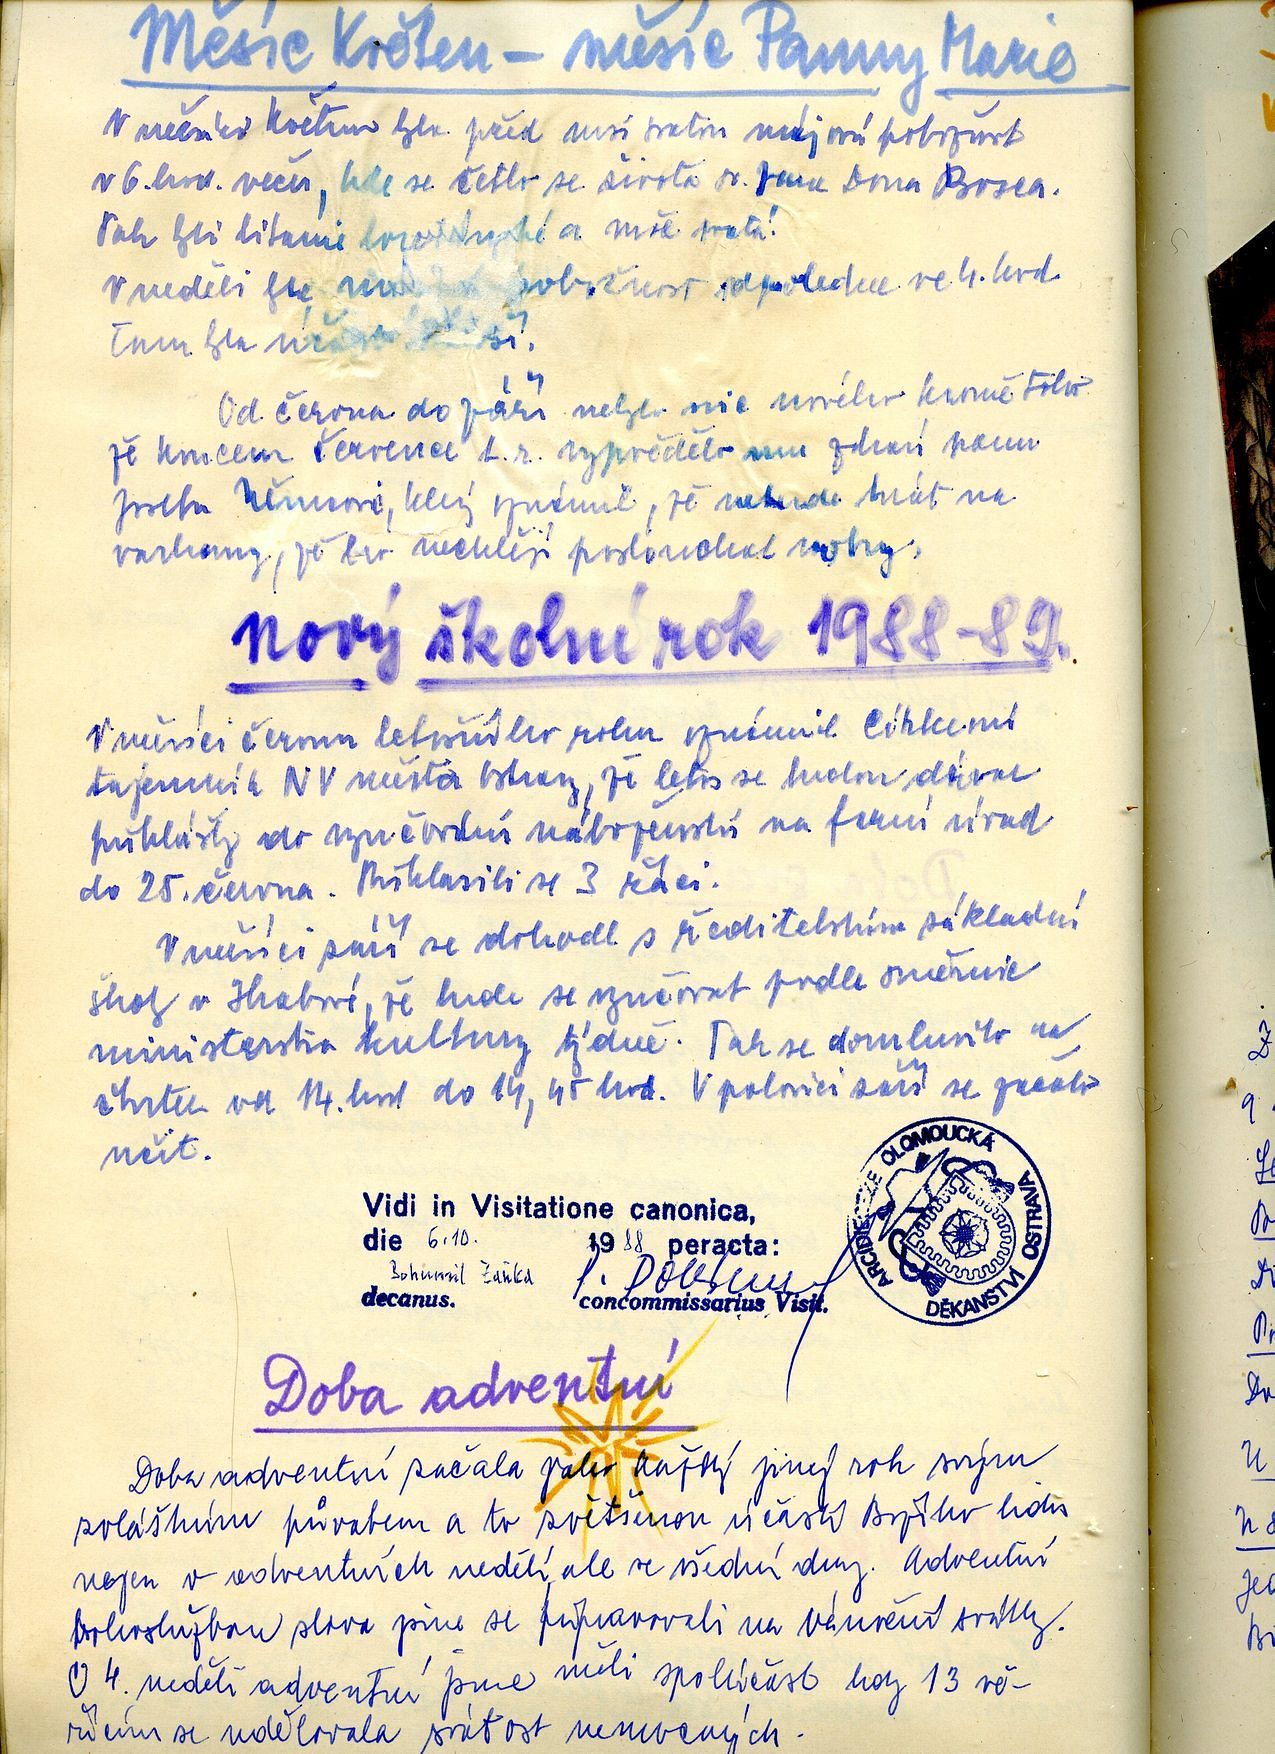 Měsíc Květen – měsíc Panny Marie
V měsíci Květnu byla před mší svatou májová pobožnost
v 6. hod. večer, kde se četlo se života sv. Jana Dona Bosca.
Pak byli litanie a mše svatá!
V neděli byla pobožnost odpoledne ve 4. hod.
Tam byla
Od června do září nebylo nic nového kromě toho
že koncem července t.r. vypovědělo mu zdraví panu
Josefu, který oznámil, že nebude hrát na
varhany, že ho nechtějí poslouchat nohy.
Nový školní rok 1988-89.
V měsíci červnu letošního roku oznámil Církevní
tajemník NV města Ostravy, že letos se budou dávat
přihlášky do vyučování náboženství na farní úřad
do 25. června. Přihlásili se 3 žáci.
V měsíci září se dohodl s ředitelstvím základní
školy v Hrabové, že bude se vyučovat podle směrnic
ministerstva kultury týdně. Tak se domluvilo na
čtvrtek od 14. hod do 14,45 hod. V polovici září se začalo
učit.
Vidi in Visitatione canonica,
die 6.10. 1988 peracta:
Bohumil Žaňka
decanus. concommissarius Visit.
ARCIDIECÉZE OLOMOUCKÁ
DĚKANSTVÍ OSTRAVA
Doba adventní
Doba adventní začala jako každý jiný rok svým
zvláštním půvabem a to zvětšenou účastí Božího lidu
nejen v adventních neděli, ale se všední dny. Adventní
bohoslužbou slova jsme se připravovali na Vánoční svátky.
O 4. neděli adventní jsme měli spoluúčast kdy 13 vě-
řícím se udělovala svátost nemocných.